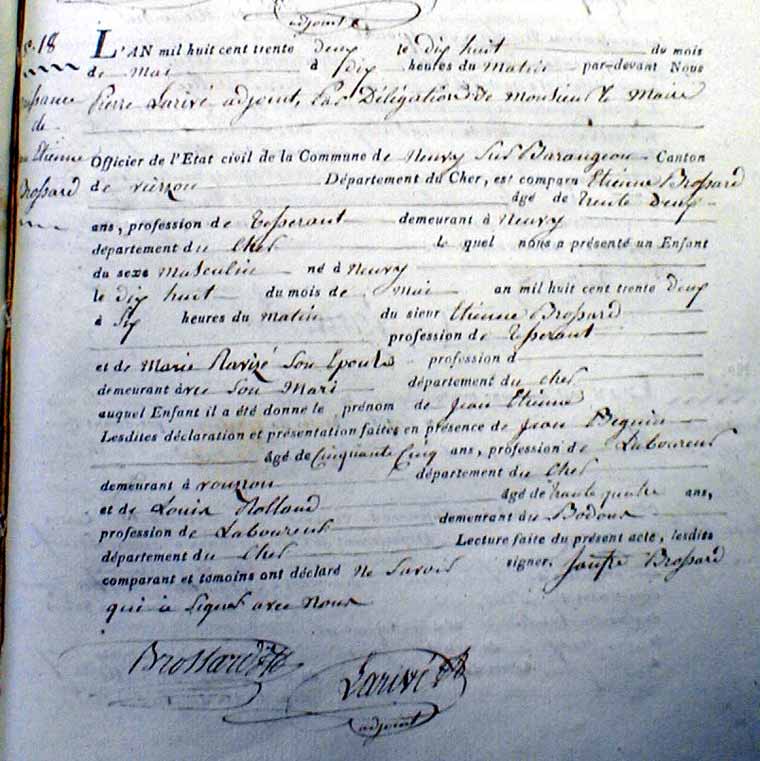 adjoint
N° 18
L'AN mil huit cent trente deux le dix huit du mois
de mai à dix heures du matin par-devant Nous
Pierre Larivé adjoint, Par Délégation de Monsieur le Maire
Naissance
de
Etienne
Brossard
Officier de l'Etat civil de la Commune de Neuvy Sur Barangeon Canton
de vierzon Département du Cher, est comparu Etienne Brossard
âgé de trente Deux
ans, profession de demeurant à Neuvy
département du Cher le quel nous a présenté un Enfant
du sexe masculin né à Neuvy
le dix huit du mois de mai an mil huit cent trente deux
à six heures du matin du sieur Etienne Brossard
profession de
et de Marie Ravizé Son Epouse profession d
demeurant avec Son Mari département du Cher
auquel Enfant il a été donné le prénom de Jean Etienne
Lesdites déclaration et présentation faites en présence de Jean Beguin
âgé de Cinquante Cinq ans, profession de Laboureur
demeurant à vouzon département du Cher
et de Louis Rolland âgé de trente quatre ans,
profession de Laboureur demeurant du Bodoux
département du Cher Lecture faite du présent acte, lesdits
comparant et témoins ont déclaré Ne Savoir signer, Brossard
qui a Signé avec Nous
Brossard
Larivé
adjoint